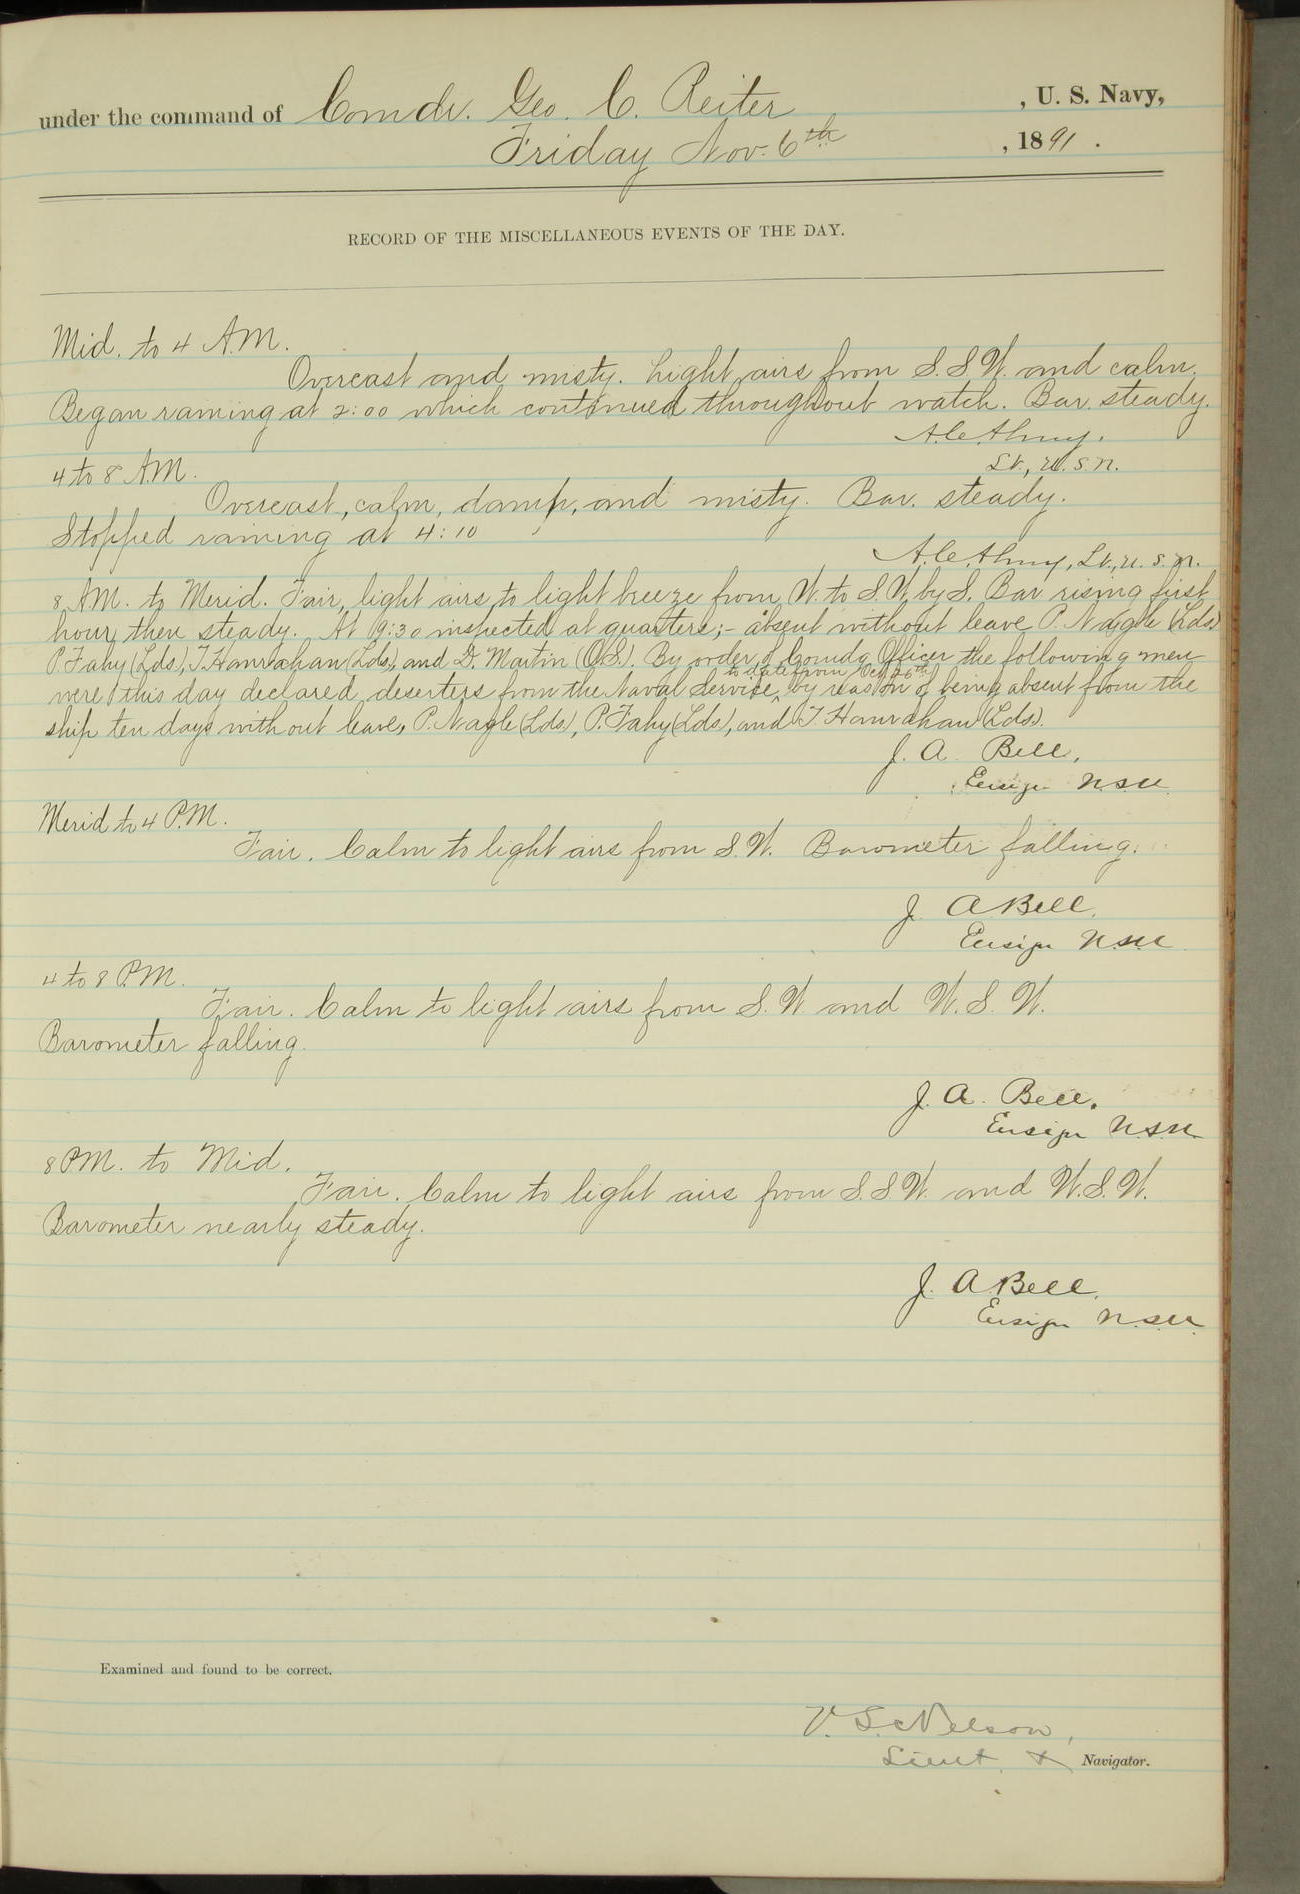 under the command of Comdr. Geo. C. Reiter, U. S. Navy,
Friday Nov. 6th, 1891.
RECORD OF THE MISCELLANEOUS EVENTS OF THE DAY.
Mid. to 4 A.M.
Overcast and misty. Light airs from S.S.W. and calm.
Began raining at 2:00 which continued throughout watch. Bar. steady.
Lt., U.S.N.
4 to 8 A.M.
Overcast, calm, damp, and misty. Bar. steady.
Stopped raining at 4:10
Lt., U.S.N.
8 A.M. to Merid. Fair, light airs to light breeze from W. to S.W. by S. Bar rising first
hour, then steady. At 9:30 inspected at quarters;- absent without leave P. Nagle (Lds)
P. Fahy (Lds.), T. Hanrahan (Lds), and D. Martin (O.S.). By order of Comdg Officer the following men
to date from Oct 26th
were this day declared deserters from the Naval Service, by reason of being absent from the
ship ten days without leave, P. Nagle (Lds), P. Fahy (Lds), and T Hanrahan (Lds).
J. A. Bell,
Ensign U.S.N.
Merid to 4 P.M.
Fair. Calm to light airs from S.W. Barometer falling.
J. A Bell,
Ensign U.S.N.
4 to 8 P.M.
Fair. Calm to light airs from S.W. and W.S.W.
Barometer falling.
J. A. Bell.
Ensign U.S.N.
8 P.M. to Mid.
Fair. Calm to light airs from S.S.W. and W.S.W.
Barometer nearly steady.
J. A Bell,
Ensign U.S.N.
Examined and found to be correct.
V. S. Nelson,
Lieut. & Navigator.